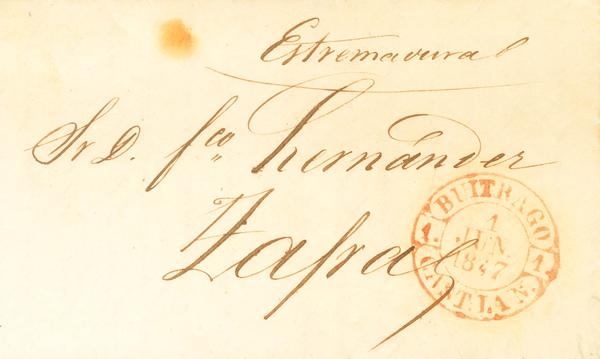 Estremadura
Sr D. fco Hernández
Zafra
BUITRAGO
1
JUN.
1847
1. 1
CAST. LA N.